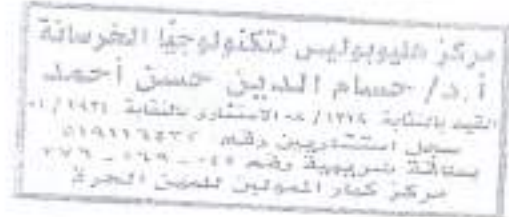 مركز هليوبوليس لتكنولوجيا الخرسانة
أ.د/ حسام الدين حسن أحمد
القيد بالنقابة ٠٨/١٣٢٤ الاستشارى بالنقابة
سجل استشاريين رقم
بطاقة ضريبية رقم ٠٤٥ - ٥٦٩ - ٢٧٦
مركز كبار الممولين للمهن الحرة